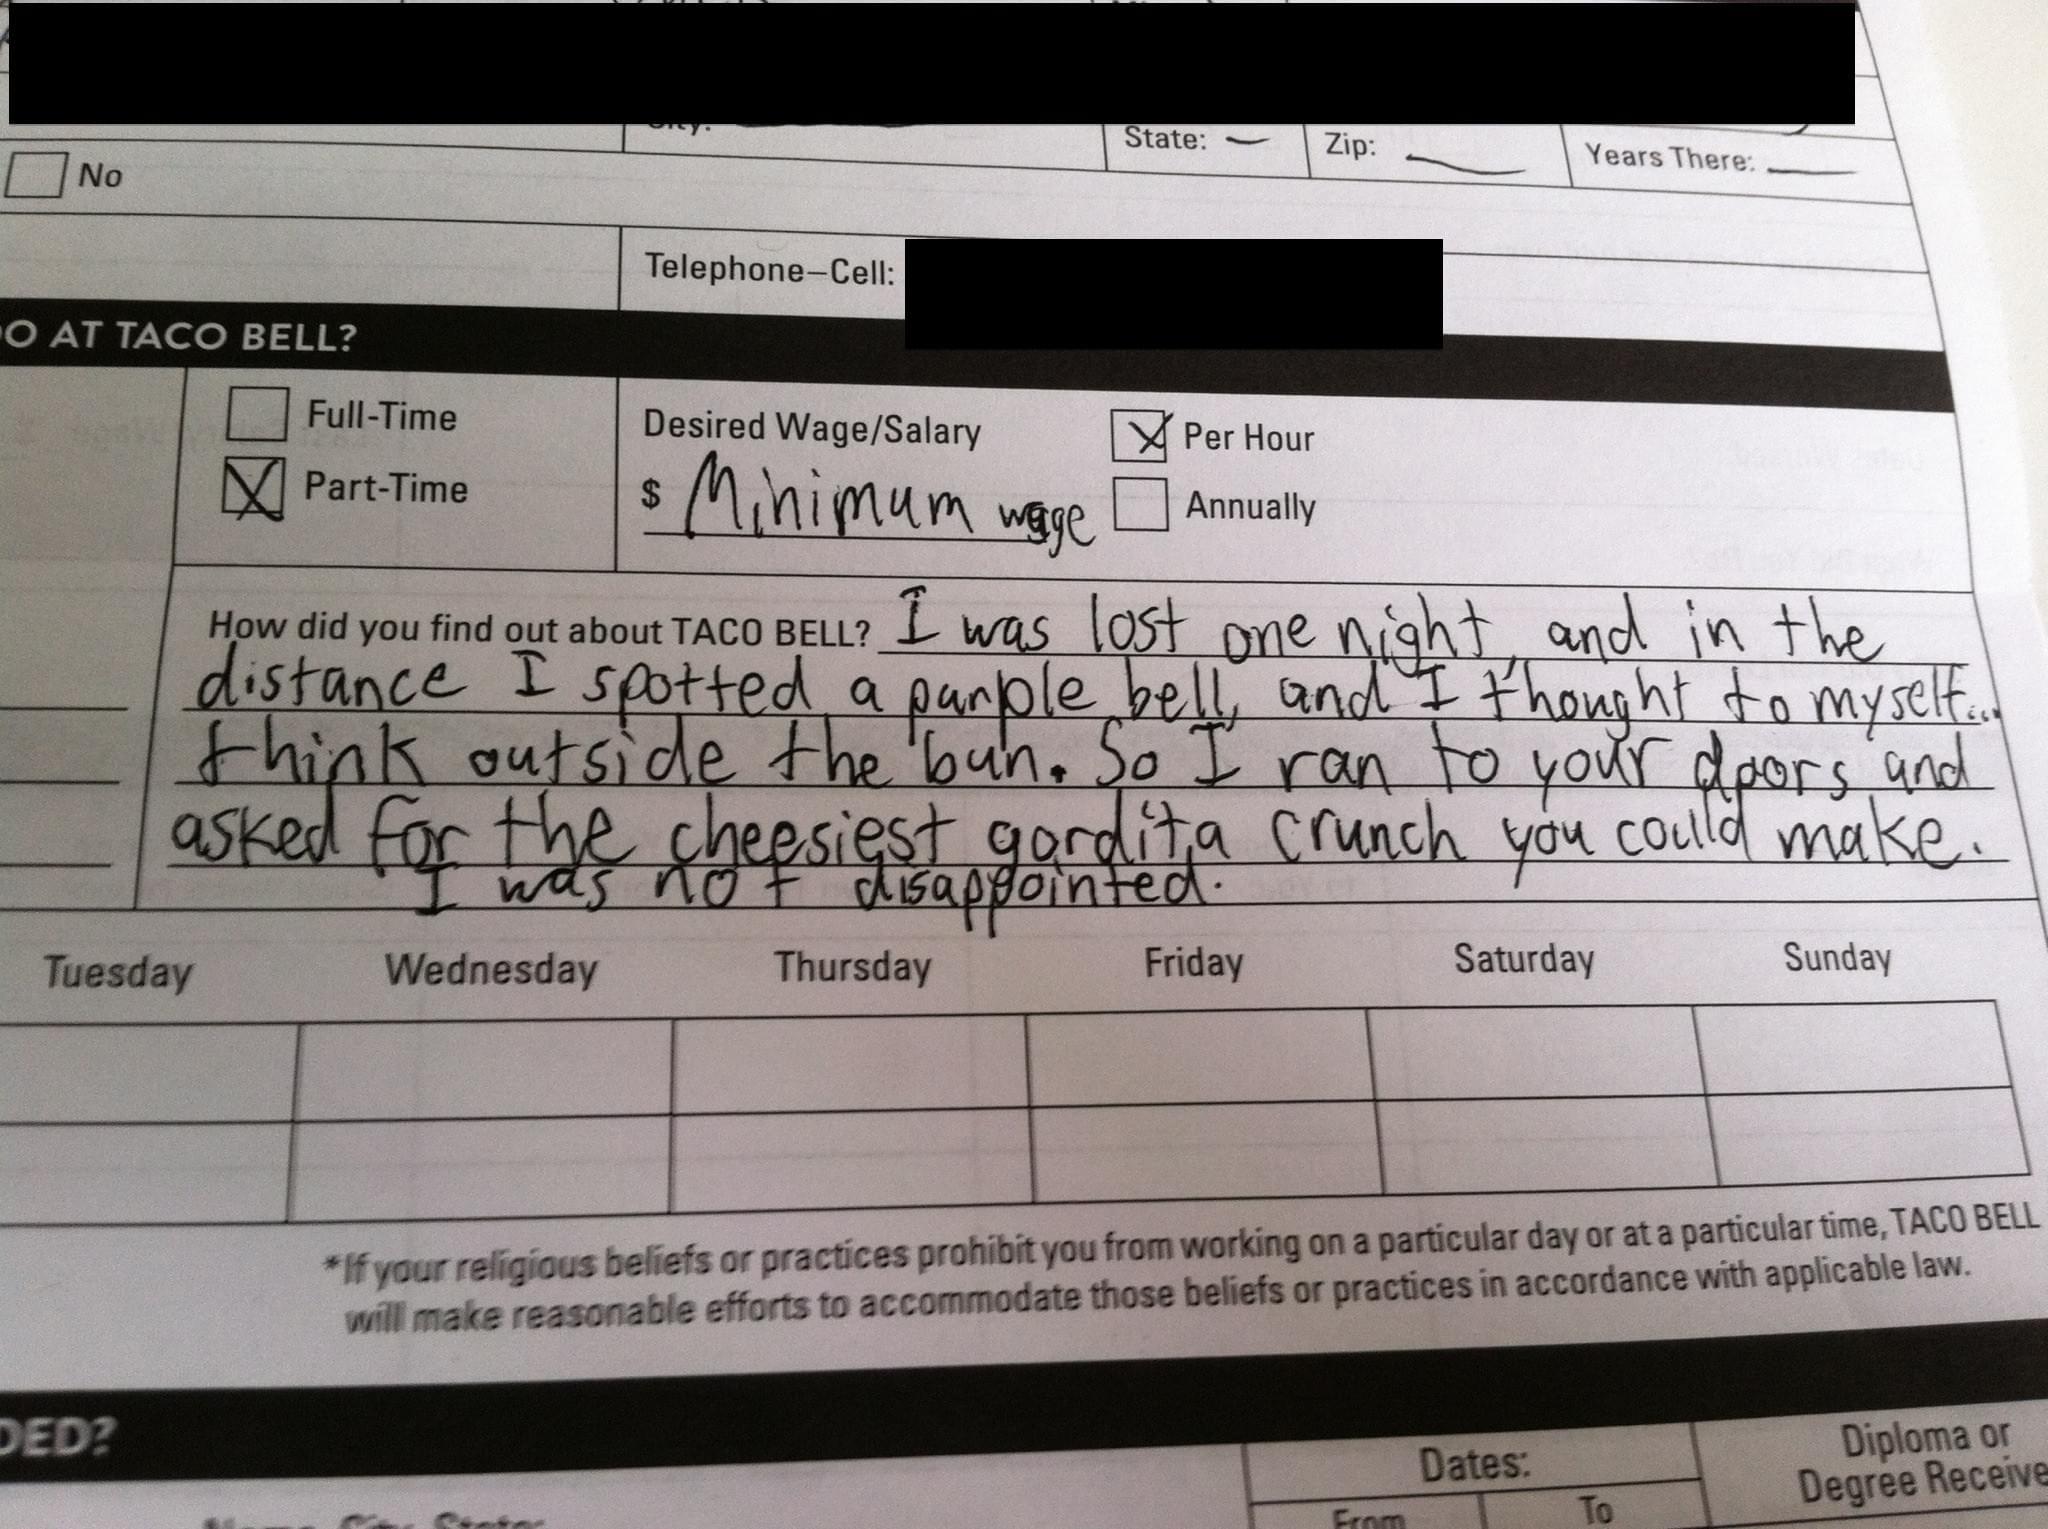 State: — Zip: — Years There: —
No
Telephone–Cell:
O AT TACO BELL?
Full-Time
Part-Time
Desired Wage/Salary
$ Minimum wage
Per Hour
Annually
How did you find out about TACO BELL? I was lost one night, and in the
distance I spotted a purple bell, and I thought to myself...
think outside the bun. So I ran to your doors and
asked for the cheesiest gordita crunch you could make.
I was not disappointed.
Tuesday Wednesday Thursday Friday Saturday Sunday
*If your religious beliefs or practices prohibit you from working on a particular day or at a particular time, TACO BELL
will make reasonable efforts to accommodate those beliefs or practices in accordance with applicable law.
DED?
Dates:
From To
Diploma or
Degree Receive